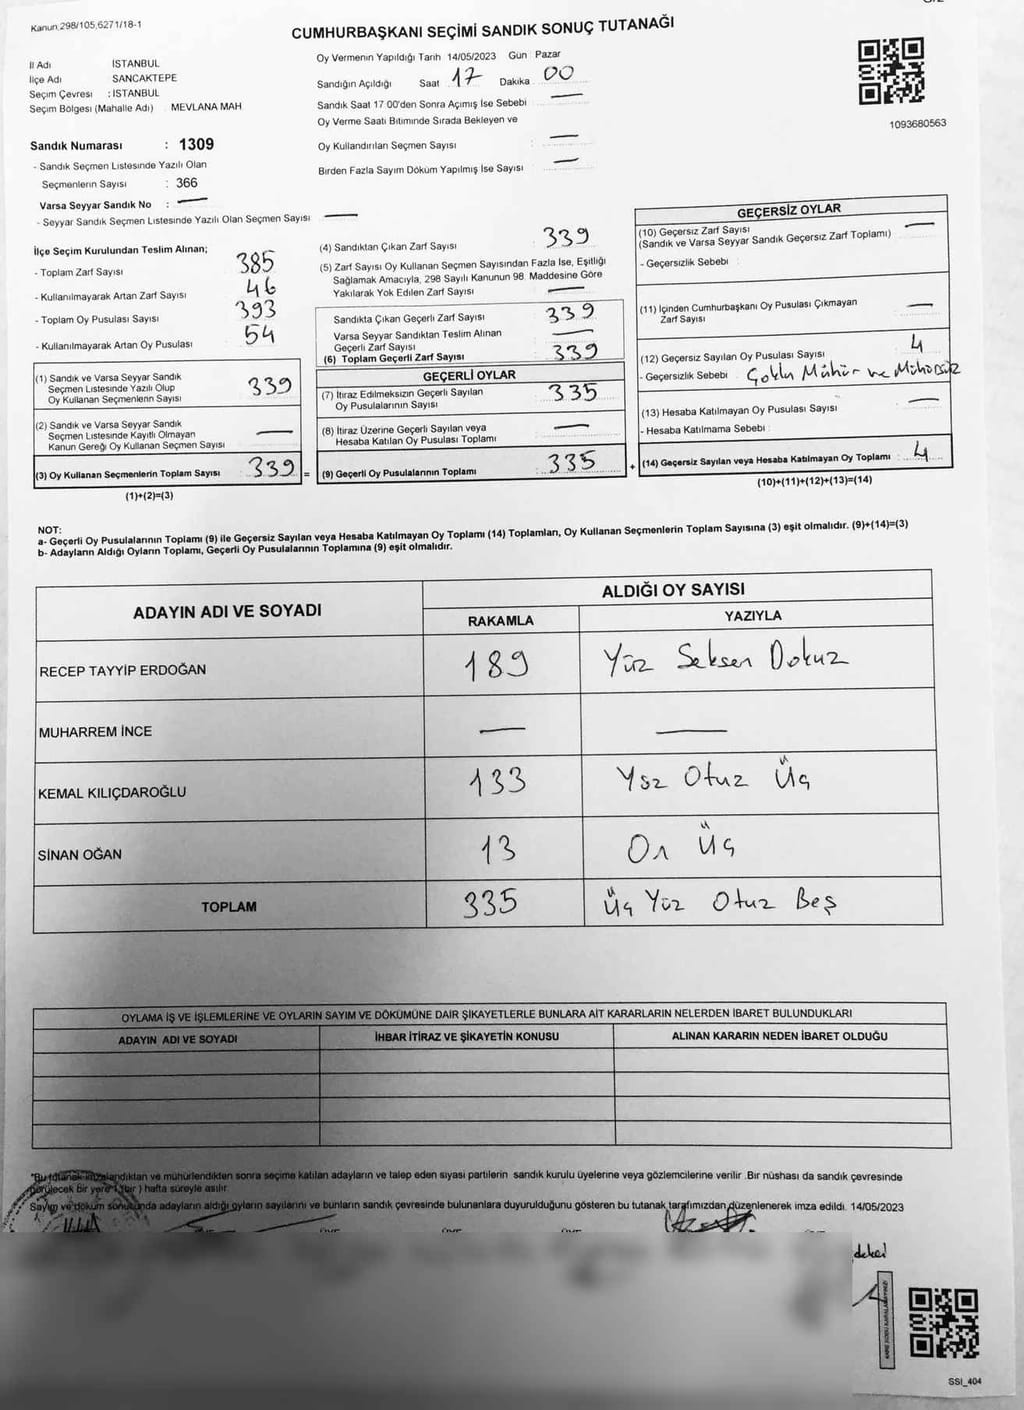 Kanun:298/105,6271/18-1
CUMHURBAŞKANI SEÇİMİ SANDIK SONUÇ TUTANAĞI
İl Adı İSTANBUL
İlçe Adı SANCAKTEPE
Seçim Çevresi : İSTANBUL
Seçim Bölgesi (Mahalle Adı) MEVLANA MAH
Sandık Numarası : 1309
- Sandık Seçmen Listesinde Yazılı Olan
Seçmenlerin Sayısı : 366
Varsa Seyyar Sandık No : —
- Seyyar Sandık Seçmen Listesinde Yazılı Olan Seçmen Sayısı —
Oy Vermenin Yapıldığı Tarih 14/05/2023 Gün Pazar
Sandığın Açıldığı Saat 17 Dakika 00
Sandık Saat 17 00'den Sonra Açımış İse Sebebi —
Oy Verme Saati Bitiminde Sırada Bekleyen ve
Oy Kullandırılan Seçmen Sayısı : —
Birden Fazla Sayım Döküm Yapılmış İse Sayısı —
1093680563
İlçe Seçim Kurulundan Teslim Alınan;
- Toplam Zarf Sayısı 385
- Kullanılmayarak Artan Zarf Sayısı 46
- Toplam Oy Pusulası Sayısı 393
- Kullanılmayarak Artan Oy Pusulası 54
(1) Sandık ve Varsa Seyyar Sandık
Seçmen Listesinde Yazılı Olup
Oy Kullanan Seçmenlerin Sayısı 339
(2) Sandık ve Varsa Seyyar Sandık
Seçmen Listesinde Kayıtlı Olmayan
Kanun Gereği Oy Kullanan Seçmen Sayısı —
(3) Oy Kullanan Seçmenlerin Toplam Sayısı 339 =
(1)+(2)=(3)
(4) Sandıktan Çıkan Zarf Sayısı 339
(5) Zarf Sayısı Oy Kullanan Seçmen Sayısından Fazla İse, Eşitliği
Sağlamak Amacıyla, 298 Sayılı Kanunun 98. Maddesine Göre
Yakılarak Yok Edilen Zarf Sayısı —
Sandıkta Çıkan Geçerli Zarf Sayısı 339
Varsa Seyyar Sandıktan Teslim Alınan
Geçerli Zarf Sayısı —
(6) Toplam Geçerli Zarf Sayısı 339
GEÇERLİ OYLAR
(7) İtiraz Edilmeksizin Geçerli Sayılan
Oy Pusulalarının Sayısı 335
(8) İtiraz Üzerine Geçerli Sayılan veya
Hesaba Katılan Oy Pusulası Toplamı —
(9) Geçerli Oy Pusulalarının Toplamı 335 +
GEÇERSİZ OYLAR
(10) Geçersiz Zarf Sayısı —
(Sandık ve Varsa Seyyar Sandık Geçersiz Zarf Toplamı)
- Geçersizlik Sebebi :
(11) İçinden Cumhurbaşkanı Oy Pusulası Çıkmayan
Zarf Sayısı —
(12) Geçersiz Sayılan Oy Pusulası Sayısı 4
- Geçersizlik Sebebi Çoklu Mühür ve Mühürsüz
(13) Hesaba Katılmayan Oy Pusulası Sayısı —
- Hesaba Katılmama Sebebi :
(14) Geçersiz Sayılan veya Hesaba Katılmayan Oy Toplamı : 4
(10)+(11)+(12)+(13)=(14)
NOT:
a- Geçerli Oy Pusulalarının Toplamı (9) ile Geçersiz Sayılan veya Hesaba Katılmayan Oy Toplamı (14) Toplamları, Oy Kullanan Seçmenlerin Toplam Sayısına (3) eşit olmalıdır. (9)+(14)=(3)
b- Adayların Aldığı Oyların Toplamı, Geçerli Oy Pusulalarının Toplamına (9) eşit olmalıdır.
ADAYIN ADI VE SOYADI ALDIĞI OY SAYISI
RAKAMLA YAZIYLA
RECEP TAYYİP ERDOĞAN 189 Yüz Seksen Dokuz
MUHARREM İNCE — —
KEMAL KILIÇDAROĞLU 133 Yüz Otuz Üç
SİNAN OĞAN 13 On Üç
TOPLAM 335 Üç Yüz Otuz Beş
OYLAMA İŞ VE İŞLEMLERİNE VE OYLARIN SAYIM VE DÖKÜMÜNE DAİR ŞİKAYETLERLE BUNLARA AİT KARARLARIN NELERDEN İBARET BULUNDUKLARI
ADAYIN ADI VE SOYADI İHBAR İTİRAZ VE ŞİKAYETİN KONUSU ALINAN KARARIN NEDEN İBARET OLDUĞU
*Bu tutanak imzalandıktan ve mühürlendikten sonra seçime katılan adayların ve talep eden siyasi partilerin sandık kurulu üyelerine veya gözlemcilerine verilir. Bir nüshası da sandık çevresinde
görülecek bir yere 1 (bir) hafta süreyle asılır.
Sayım ve döküm sonucunda adayların aldığı oyların sayılarını ve bunların sandık çevresinde bulunanlara duyurulduğunu gösteren bu tutanak tarafımızdan düzenlenerek imza edildi. 14/05/2023
SSI_404